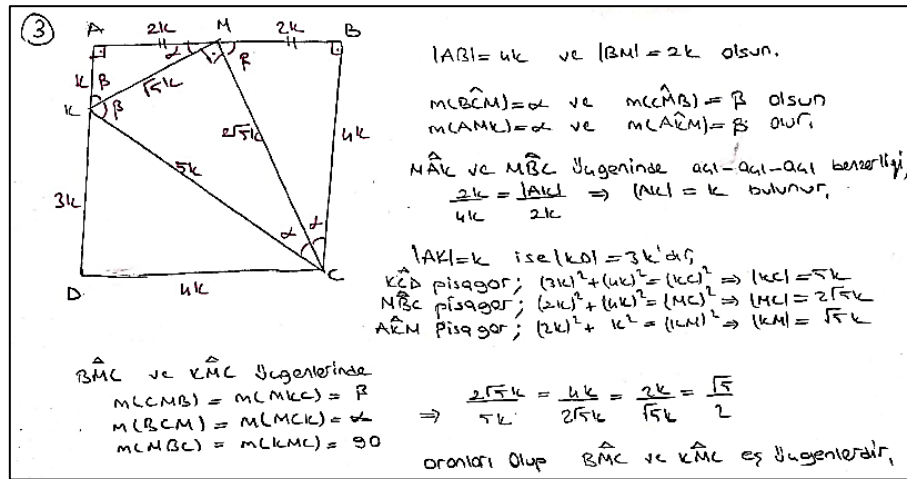 ③
A 2k M 2k B
α β
k β √5k
K β
2√5k 4k
5k
3k
α α
D 4k C
|AB| = 4k ve |BM| = 2k olsun.
m(BĈM) = α ve m(CM̂B) = β olsun
m(AMK) = α ve m(AK̂M) = β olur.
MÂK ve MB̂C üçgeninde açı-açı-açı benzerliği,
2k/4k = |AK|/2k ⇒ |AK| = k bulunur.
|AK| = k ise |KD| = 3k'dır,
KĈD pisagor; (3k)² + (4k)² = (KC)² ⇒ |KC| = 5k
MB̂C pisagor; (2k)² + (4k)² = (MC)² ⇒ |MC| = 2√5k
AK̂M Pisagor; (2k)² + k² = (KM)² ⇒ |KM| = √5k
BM̂C ve KM̂C üçgenlerinde
m(CMB) = m(MKC) = β
m(BCM) = m(MCK) = α
m(MBC) = m(KMC) = 90
⇒ 2√5k/5k = 4k/2√5k = 2k/√5k = √5/2
oranları olup BM̂C ve KM̂C eş üçgenlerdir.